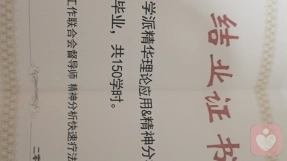 结业证书
学派精华理论应用&精神分
毕业，共150学时。
工作联合会督导师 精神分析快速疗法
二零